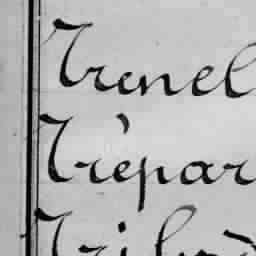 Trenel
Trèpar